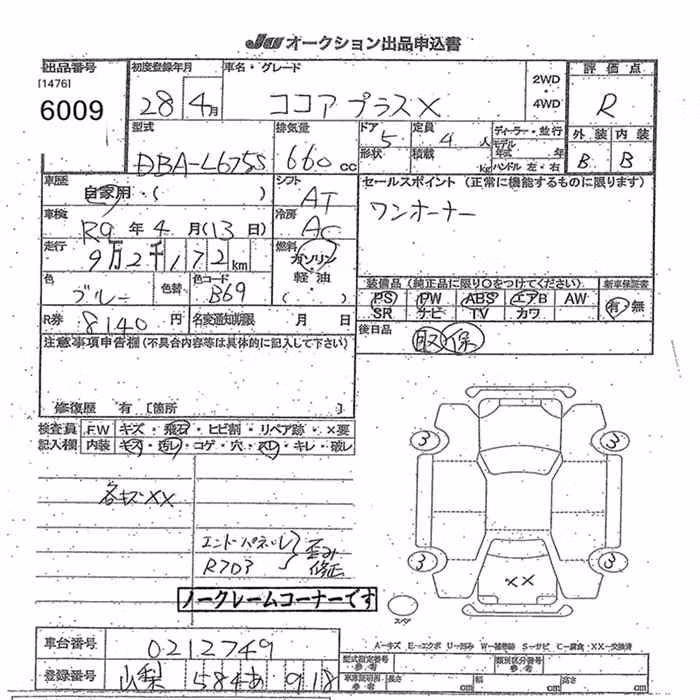 JU オークション出品申込書
出品番号
[1476]
6009
初度登録年月
28 4月
車名・グレード
ココア プラスX
2WD
・
4WD
評価点
R
外装 内装
B B
型式
DBA-L675S
排気量
660 cc
ドア
5
形状
定員
4 人
積載
kg
ディーラー・並行
モデル年式 年
ハンドル 左・右
車歴
自家用・( )
シフト
AT
セールスポイント (正常に機能するものに限ります)
ワンオーナー
車検
R9年 4月(13日)
冷房
AC
走行
9万2千172km
燃料
ガソリン
・
軽油
色
ブルー
色替
色コード
B69
装備品(純正品に限り○をつけてください)
新車保証書
PS PW ABS エアB AW
有・無
SR ナビ TV カワ
R券
8140円
名変通知期限 月 日
後日品
取 保
注意事項申告欄(不具合内容等は具体的に記入して下さい)
修復歴 有 [箇所 ]
検査員記入欄
F.W キズ・飛石・ヒビ割・リペア跡・×要
内装 キズ・汚レ・コゲ・穴・スレ・キレ・破レ
3
3
3
3
XX
エンドパネル
R707
歪み
修正
ノークレームコーナーです
スペア
A→キズ E→エクボ U→凹み W→補修跡 S→サビ C→腐食・XX→交換済
車台番号
0212749
登録番号
山梨 584 あ 918
型式指定番号
参考
類別区分番号
参考
車庫証明用
参考
長さ cm
幅 cm
高さ cm